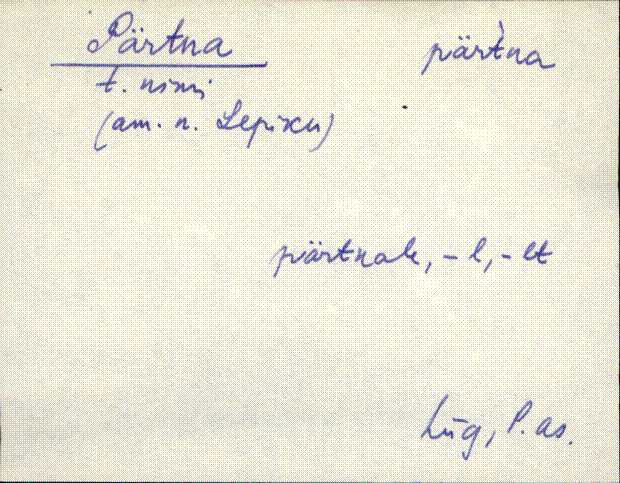 Pärtna pärt̀na
t. nimi
(am. n. Lepiku)
pärtnale, -l, -lt
Lüg, P. as.